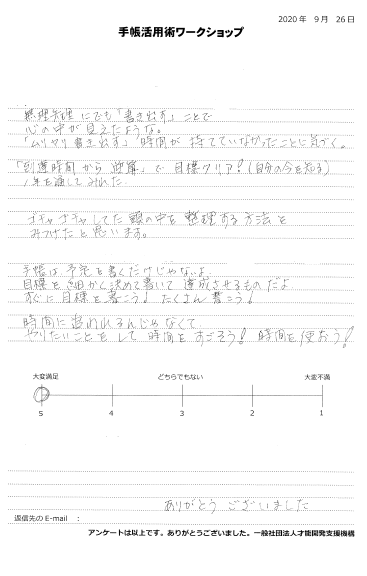 2020年 9月 26日
手帳活用術ワークショップ
無理矢理にでも「書き出す」ことで
心の中が見えたような。
「ムリヤリ書き出す」時間が持てていなかったことに気づく。
「到達時間から逆算」で目標クリア!(自分の今を知る)
1年を通してみれた
ゴチャゴチャしてた頭の中を整理する方法を
みつけたと思います。
手帳は、予定を書くだけじゃないよ
目標を細かく決めて書いて達成させるものだよ
すぐに目標を書こう! たくさん書こう!
時間に追われるんじゃなくて
やりたいことをして時間をすごそう! 時間を使おう!
大変満足 どちらでもない 大変不満
5 4 3 2 1
ありがとうございました
返信先のE-mail :
アンケートは以上です。ありがとうございました。一般社団法人才能開発支援機構